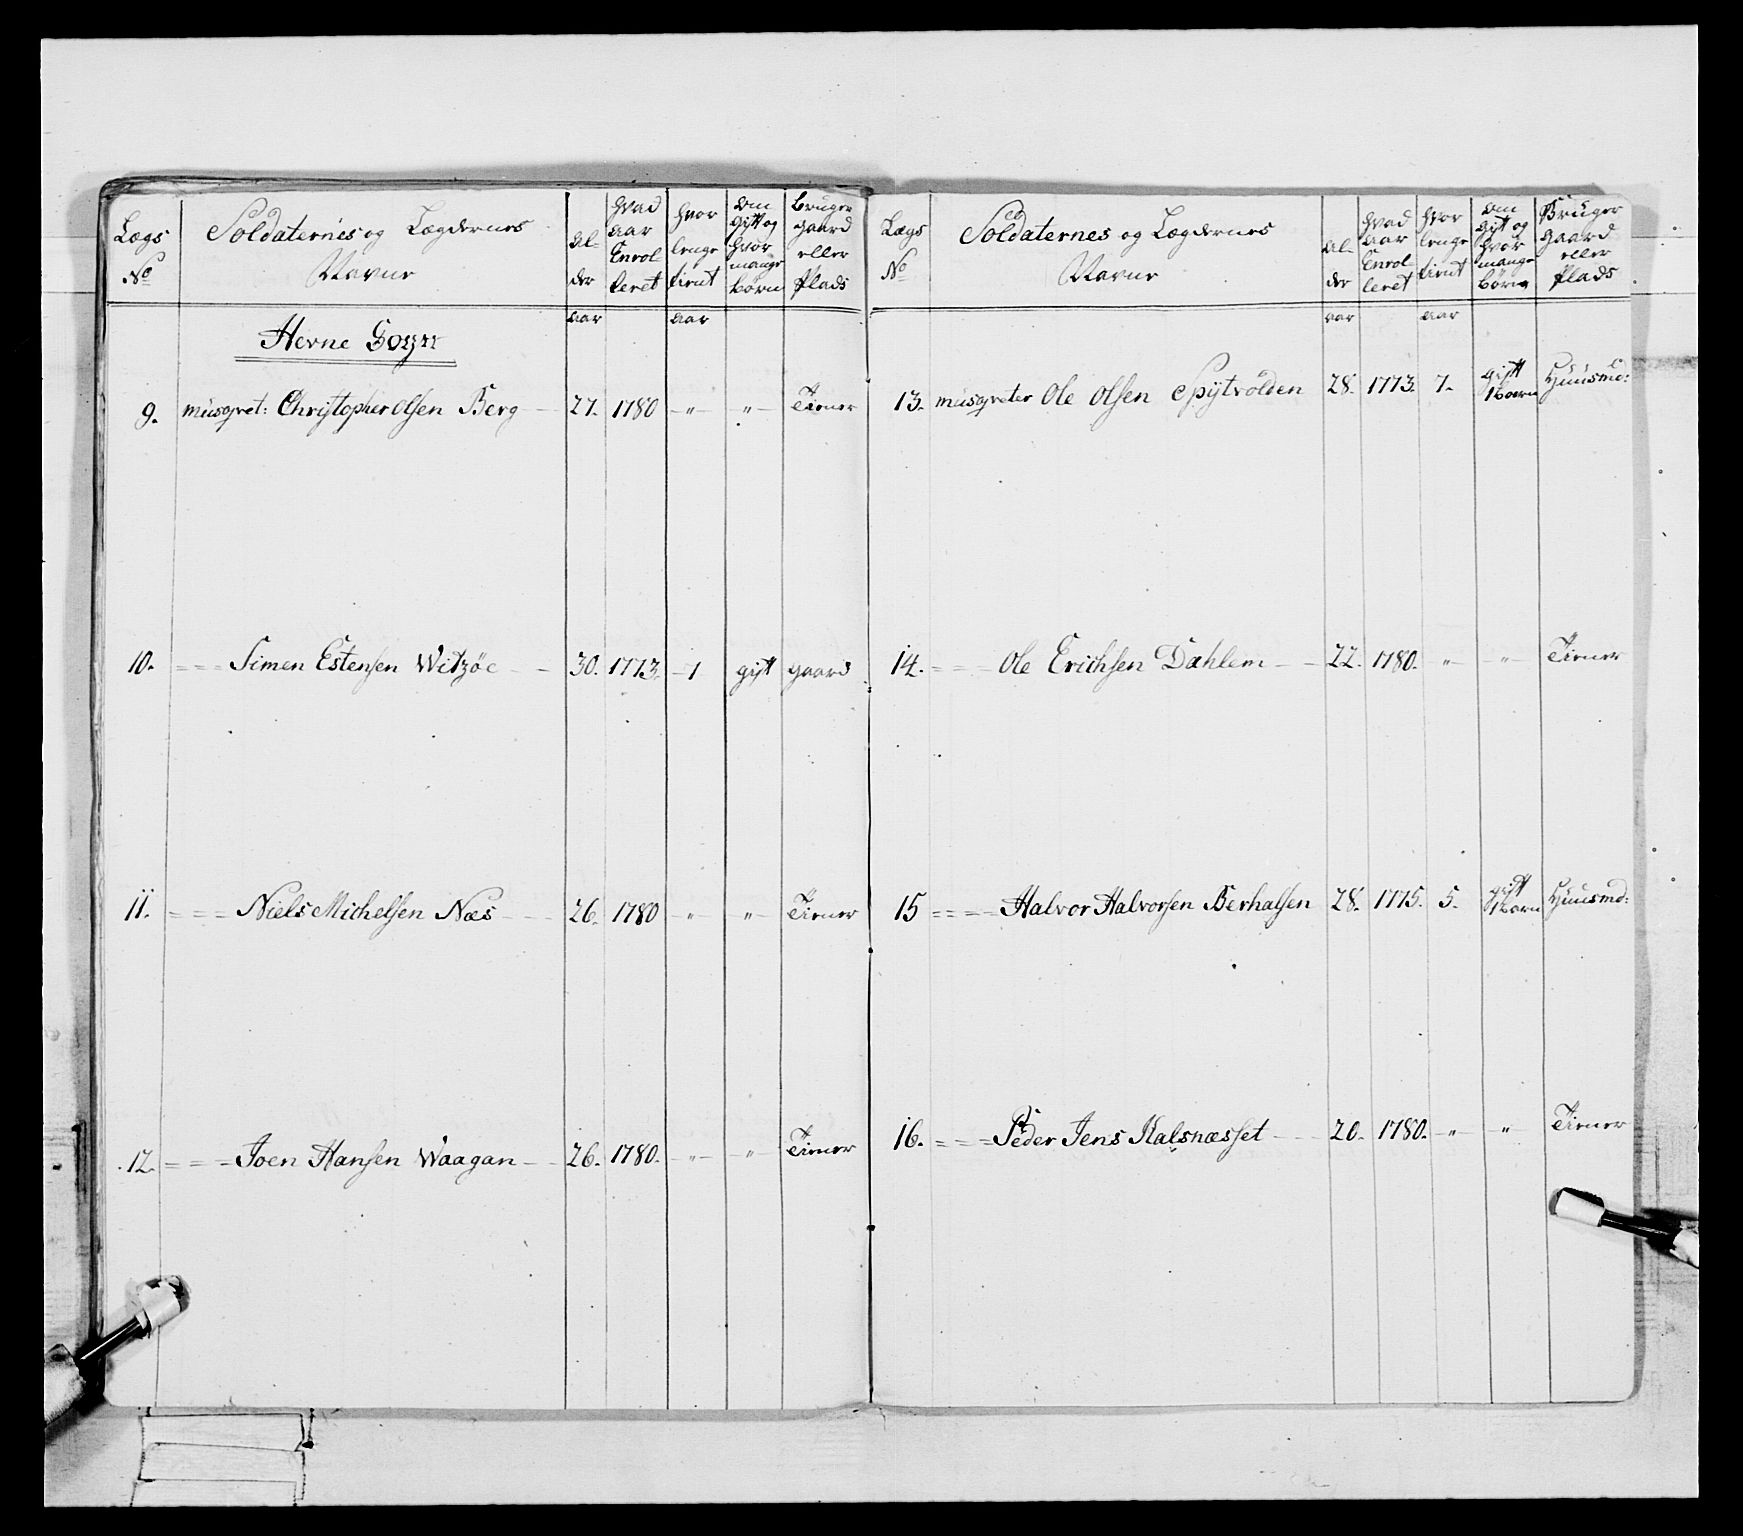 Lægs No | Soldaternes og Lægdernes Navne | Al-der | Hvad Aar Enrol-leret | Hvor lenge tient | Om Gift og Hvor mange Børn | Bruger Gaard eller Plads
aar | aar
Hevne Sogn
9. musqvet: Christopher Olsen Berg - 27. 1780 - " - " - Tiener
10. = = = Simen Estensen Witzøe - - 30. 1773. - 7 gift gaard
11. = = = Niels Michelsen Næs - - 26. 1780 " " - Tiener
12. = = = Joen Hansen Waagan - - 26. 1780. - " - - " - Tiener
Lægs No | Soldaternes og Lægdernes Navne | Al-der | Hvad Aar Enrol-leret | Hvor lenge tient | Om Gift og Hvor mange Børn | Bruger Gaard eller Plads
aar | aar
13. musqveter Ole Olsen Spÿtvolden 28. 1773. 7. gift 1 barn Huusmd:
14. = = = Ole Erichsen Dahlem - - 22. 1780. " - " - Tiener
15 = = = Halvor Halvorsen Berhalsen 28. 1775. 5. gift 1 barn Huusmd:
16. = = = Peder Jens Kalsnæsset - - 20. 1780. - " - " Tiener